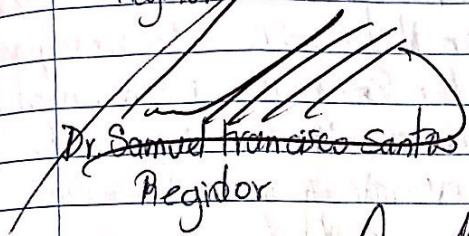 Regidor
Dr. Samuel Francisco Santos
Regidor